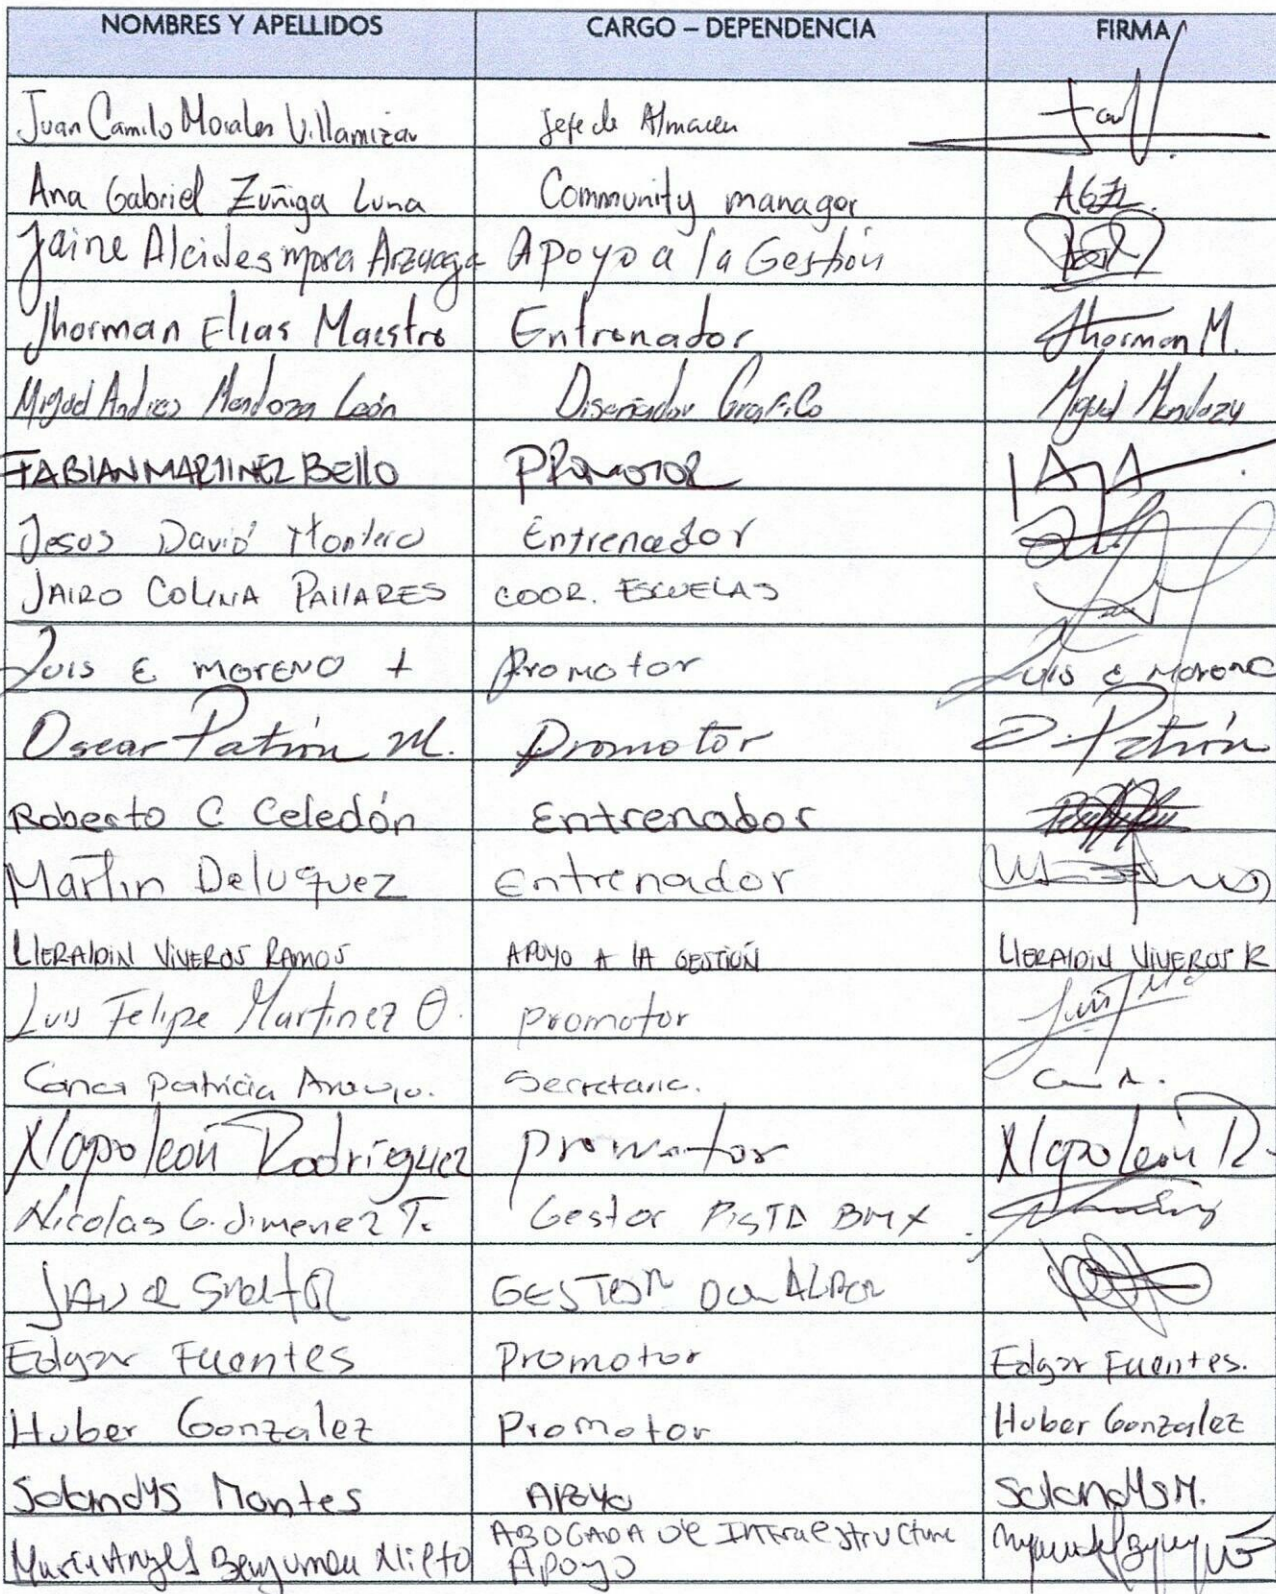 NOMBRES Y APELLIDOS CARGO – DEPENDENCIA FIRMA
Juan Camilo Morales Villamizar Jefe de Almacen
Ana Gabriel Zuñiga Luna Community manager AGZL.
Jaine Alcides mora Arzuaga Apoyo a la Gestión
Jhorman Elias Maestre Entrenador Jhorman M.
Miguel Andres Mendoza León Diseñador GraFiCo Miguel Mendoza
FABIAN MARTINEZ BEllO PROMOTOR
Jesus David Montero Entrenador
JAIRO COLINA PAllARES COOR. ESCUELAS
Luis E MORENO Promotor Luis E Moreno
Oscar Patrón M. Promotor O. Patrón
Roberto C Celedón Entrenador
Martin Deluquez Entrenador
LIERALDIN VIVEROS RAMOS APOYO A LA GESTIÓN LIERALDIN VIVEROS R
Luis Felipe Martinez O. promotor
Patricia Araujo. Secretaria.
Napoleon Rodriguez promotor Napoleon R.
Nicolas G. Jimenez T. Gestor PISTA BMX
GESTOR
Edgar Fuentes Promotor Edgar Fuentes.
Huber Gonzalez Promotor Huber Gonzalez
Solandys Montes Apoyo Solandys M.
Maria Angel Benjumea Nieto ABOGADA De Infraestructura
Apoyo